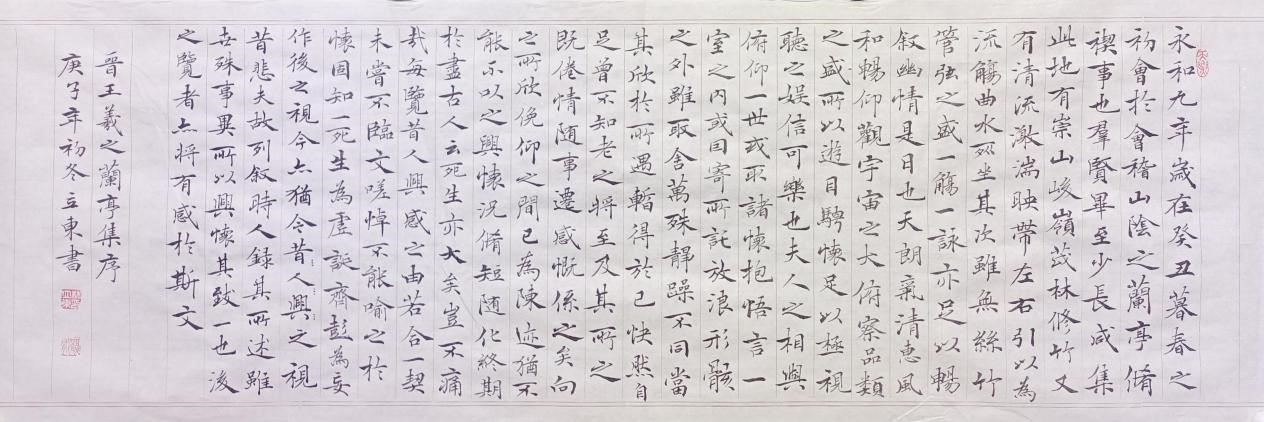 永和九年歲在癸丑暮春之
初會於會稽山陰之蘭亭脩
禊事也羣賢畢至少長咸集
此地有崇山峻嶺茂林修竹又
有清流激湍映帶左右引以為
流觴曲水列坐其次雖無絲竹
管弦之盛一觴一詠亦足以暢
叙幽情是日也天朗氣清惠風
和暢仰觀宇宙之大俯察品類
之盛所以遊目騁懷足以極視
聽之娛信可樂也夫人之相與
俯仰一世或取諸懷抱悟言一
室之內或因寄所託放浪形骸
之外雖取舍萬殊靜躁不同當
其欣於所遇暫得於己快然自
足曾不知老之將至及其所之
既倦情随事遷感慨係之矣向
之所欣俛仰之間已為陳迹猶不
能不以之興懷況脩短随化終期
於盡古人云死生亦大矣豈不痛
哉每覽昔人興感之由若合一契
未嘗不臨文嗟悼不能喻之於
懷固知一死生為虛誕齊彭為妄
作後之視今亦猶今昔人興之視
昔悲夫故列叙時人録其所述雖
世殊事異所以興懷其致一也後
之覽者亦將有感於斯文
晉王羲之蘭亭集序
庚子年初冬立東書